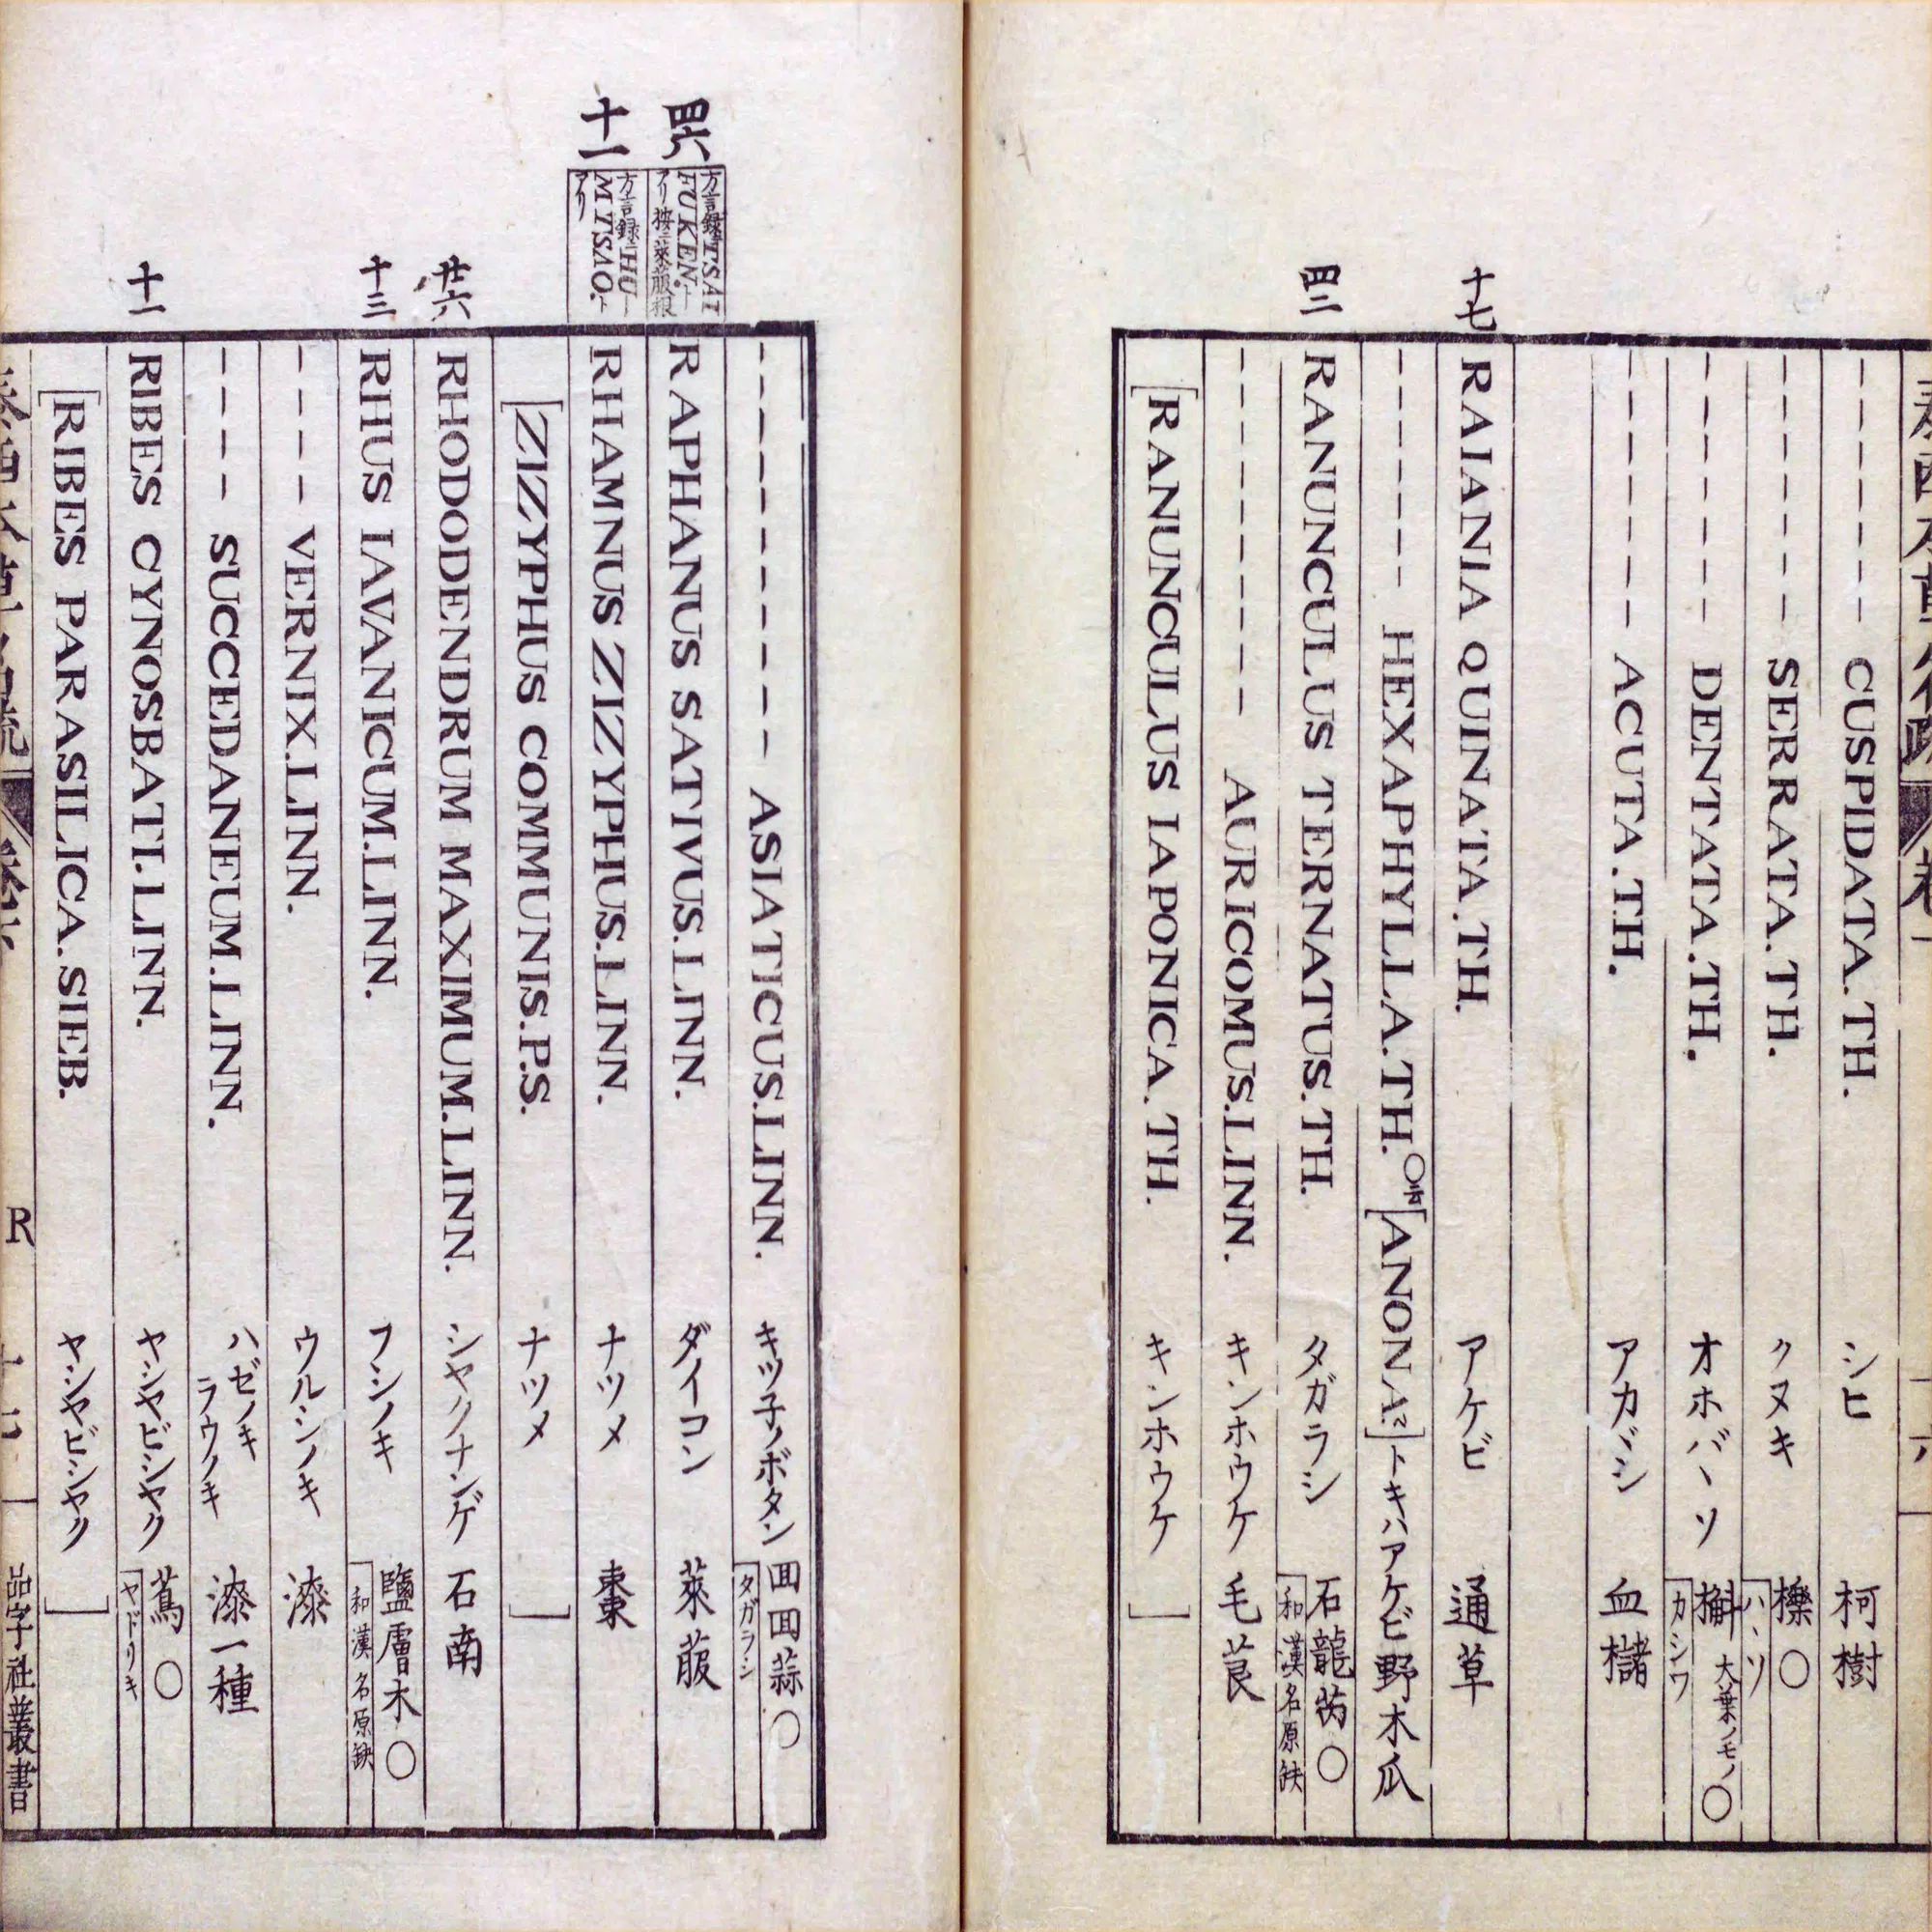 ----- CUSPIDATA.TH. シヒ 柯樹
----- SERRATA.TH. クヌキ 櫟〇 ハヽソ
----- DENTATA.TH. オホバヽソ 槲 大葉ノモノ〇 カシワ
----- ACUTA.TH. アカガシ 血櫧
十七 RAIANIA QUINATA.TH. アケビ 通草
----- HEXAPHYLLA.TH.〇 [ANONA.] トキハアケビ 野木瓜
RANUNCULUS TERNATUS.TH. タガラシ 石龍芮〇 和漢名原缺
------- AURICOMUS.LINN. キンホウケ 毛茛
[RANUNCULUS IAPONICA.TH. キンホウケ ]
-------- ASIATICUS.LINN. キツ子ノボタン 回回蒜〇 タガラシ
方言録ニTSAI FUKEN.トアリ按ニ萊菔根
RAPHANUS SATIVUS.LINN. ダイコン 萊菔
十一 方言録ニHUM TSAO.トアリ
RHAMNUS ZIZYPHUS.LINN. ナツメ 棗
[ZIZYPHUS COMMUNIS.P.S. ナツメ ]
廿六 RHODODENDRUM MAXIMUM.LINN. シヤクナンゲ 石南
十三 RHUS IAVANICUM.LINN. フシノキ 鹽膚木〇 和漢名原缺
---- VERNIX.LINN. ウルシノキ 漆
---- SUCCEDANEUM.LINN. ハゼノキ ラウノキ 漆一種
十一 RIBES CYNOSBATI.LINN. ヤシヤビシヤク 蔦〇 ヤドリキ
[RIBES PARASILICA.SIEB. ヤシヤビシヤク ]
R
品字社叢書